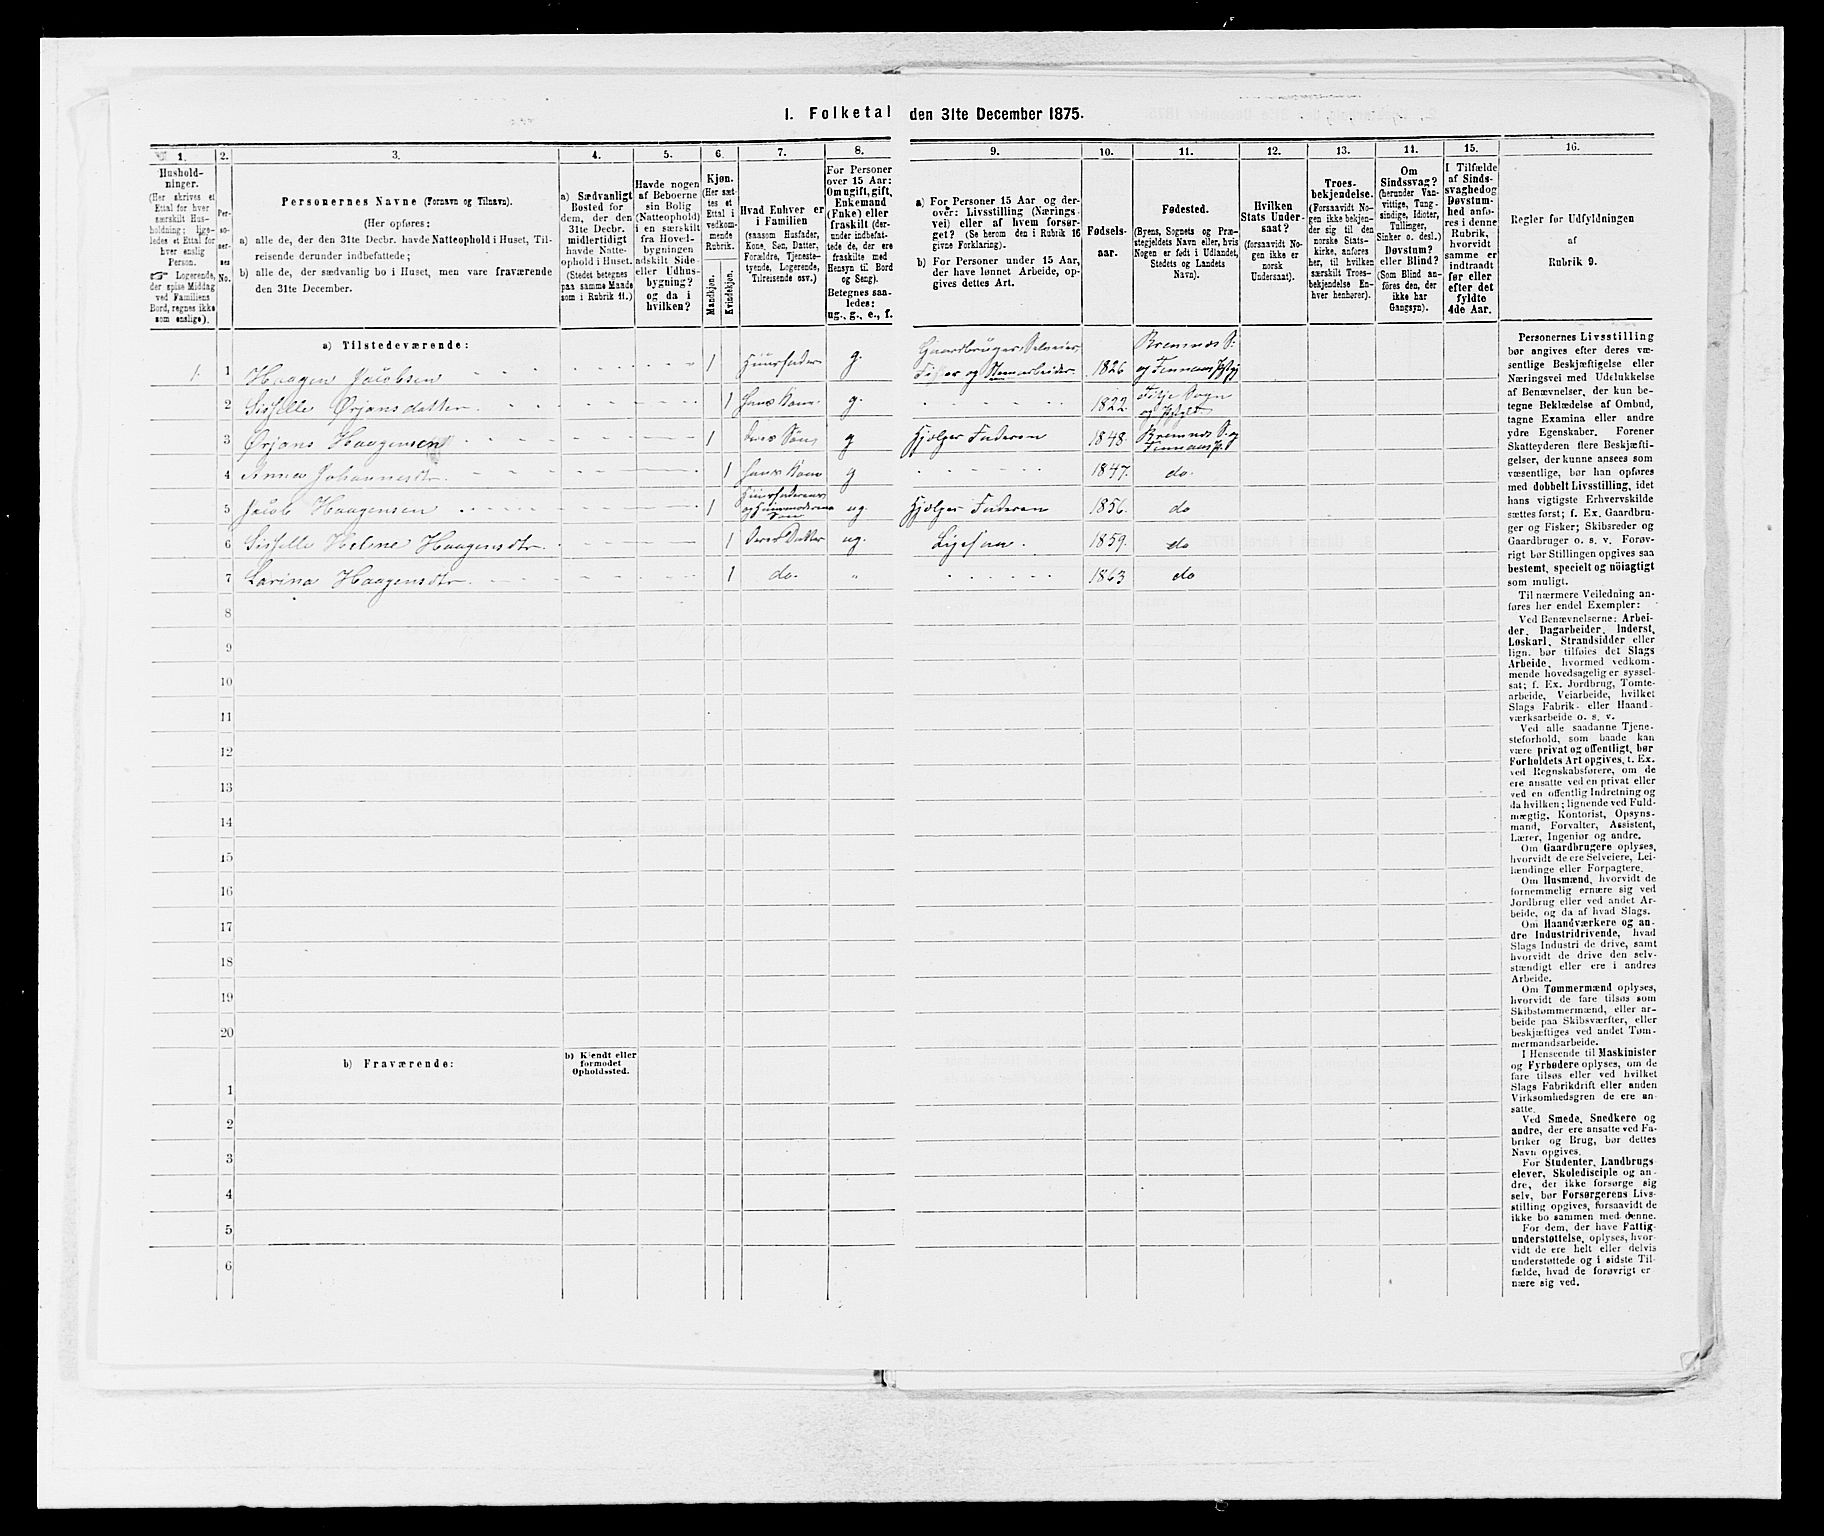 I. Folketal den 31te December 1875.
1.
2.
3.
4.
5.
6.
7.
8.
9.
10.
11.
12.
13.
14.
15.
16.
Hushold-
ninger.
(Her skrives et
Ettal for hver
særskilt Hus-
holdning; lige-
ledes et Ettal for
hver enslig
Person.
☞ Logerende,
der spise Middag
ved Familiens
Bord, regnes ikke
som enslige).
Per-
so-
ner-
nes
No.
Personernes Navne (Fornavn og Tilnavn).
(Her opføres:
a) alle de, der den 31te Decbr. havde Natteophold i Huset, Til-
reisende derunder indbefattede;
b) alle de, der sædvanlig bo i Huset, men vare fraværende
den 31te December.
a) Sædvanligt
Bosted for
dem, der den
31te Decbr.
midlertidigt
havde Natte-
ophold i Huset.
(Stedet betegnes
paa samme Maade
som i Rubrik 11.)
Havde nogen
af Beboerne
sin Bolig
(Natteophold)
i en særskilt
fra Hovel-
bygningen
adskilt Side-
eller Udhus-
bygning?
og da i
hvilken?
Kjøn.
(Her sæt-
tes et
Ettal i
vedkom-
mende
Rubrik.
Mandkjøn.
Kvindekjøn.
Hvad Enhver er
i Familien
(saasom Husfader,
Kone, Søn, Datter,
Forældre, Tjeneste-
tyende, Logerende,
Tilreisende osv.)
For Personer
over 15 Aar:
Om ugift, gift,
Enkemand
(Enke) eller
fraskilt (der-
under indbefat-
tede de, der ere
fraskilte med
Hensyn til Bord
og Seng).
Betegnes saa-
ledes:
ug., g., e., f.
a) For Personer 15 Aar og der-
over: Livsstilling (Nærings-
vei) eller af hvem forsør-
get? (Se herom den i Rubrik 16
givne Forklaring).
b) For Personer under 15 Aar,
der have lønnet Arbeide, op-
gives dettes Art.
Fødsels-
aar.
Fødested.
(Byens, Sognets og Præ-
stegjeldets Navn eller, hvis
Nogen er født i Udlandet,
Stedets og Landets
Navn).
Hvilken
Stats Under-
saat?
(forsaavidt No-
gen ikke er
norsk
Undersaat).
Troes-
bekjendelse.
(Forsaavidt No-
gen ikke bekjen-
der sig til den
norske Stats-
kirke, anføres
her, til hvilken
særskilt Troes-
bekjendelse En-
hver henhører).
Om
Sindssvag?
(herunder Van-
vittige, Tung-
sindige, Idioter,
Tullinger,
Sinker o. desl.)
Døvstum?
eller Blind?
(Som Blind an-
føres den, der
ikke har
Gangsyn).
I Tilfælde
af Sinds-
svaghed og
Døvstum-
hed anfø-
res i denne
Rubrik,
hvorvidt
samme er
indtraadt
før eller
efter det
fyldte
4de Aar.
Regler for Udfyldningen
af
Rubrik 9.
a) Tilstedeværende:
1. 1 Haagen Jacobsen 1 Huusfader g. Gaardbruger Selveier, Fisker og Steenarbeider 1826 Bremnæs S. og Finnaas Pgj
2 Sisselle Ørjansdatter 1 Hans Kone g. 1822 Fitje Sogn og Pgjld
3 Ørjans Haagensen 1 deres Søn g Hjælper Faderen 1848 Bremnæs S. og Finnaas P.
4 Anna Johannesdtr. 1 hans Kone g 1847. do.
5 Jacob Haagensen 1 Huusfaderens og Huusmoderens Søn ug. Hjælper Faderen 1856. do
6 Sisselle Helene Haagensdtr. 1 deres Datter ug. Ligesaa. 1859. do
7 Larina Haagensdtr. 1 do. " 1863 do
8
9
10
11
12
13
14
15
16
17
18
19
20
b) Fraværende:
b) Kjendt eller
formodet
Opholdssted.
1
2
3
4
5
6
Personernes Livsstilling
bør angives efter deres væ-
sentlige Beskjæftigelse eller
Næringsvei med Udelukkelse
af Benævnelser, der kun be-
tegne Beklædelse af Ombud,
tagne Examina eller andre
ydre Egenskaber. Forener
Skatteyderen flere Beskjæfti-
gelser, der kunne ansees som
væsentlige, bør han opføres
med dobbelt Livsstilling, idet
hans vigtigste Erhvervskilde
sættes først; f. Ex. Gaardbru-
ger og Fisker; Skibsreder og
Gaardbruger o. s. v. Forøv-
rigt bør Stillingen opgives saa
bestemt, specielt og nöiagtigt
som muligt.
Til nærmere Veiledning an-
føres her endel Exempler:
Ved Benævnelserne: Arbei-
der, Dagarbeider, Inderst,
Løskarl, Strandsidder eller
lign. bør tilføies det Slags
Arbeide, hvormed vedkom-
mende hovedsagelig er syssel-
sat; f. Ex. Jordbrug, Tomte-
arbeide, Veiarbeide, hvilket
Slags Fabrik- eller Haand-
værksarbeide o. s. v.
Ved alle saadanne Tjene-
steforhold, som baade kan
være privat og offentligt, bør
Forholdets Art opgives, f. Ex.
ved Regnskabsførere, om de
ere ansatte ved en privat eller
ved en offentlig Indretning og
da hvilken; lignende ved Fuld-
mægtig, Kontorist, Opsyns-
mand, Forvalter, Assistent,
Lærer, Ingeniør og andre.
Om Gaardbrugere oplyses,
hvorvidt de ere Selveiere, Lei-
lændinge eller Forpagtere.
Om Husmænd, hvorvidt de
fornemmelig ernære sig ved
Jordbrug eller ved andet Ar-
beide, og da af hvad Slags.
Om Haandværkere og an-
dre Industridrivende, hvad
Slags Industri de drive, samt
hvorvidt de drive den selv-
stændigt eller ere i andres
Arbeide.
Om Tømmermænd oplyses,
hvorvidt de fare tilsøs som
Skibstømmermænd, eller ar-
beide paa Skibsværfter, eller
beskjæftiges ved andet Tøm-
mermandsarbeide.
I Henseende til Maskinister
og Fyrbødere oplyses, om de
fare tilsøs eller ved hvilket
Slags Fabrikdrift eller anden
Virksomhedsgren de ere an-
satte.
Ved Smede, Snedkere og
andre, der ere ansatte ved Fa-
briker og Brug, bør dettes
Navn opgives.
For Studenter, Landbrugs-
elever, Skoledisciple og an-
dre, der ikke forsørge sig
selv, bør Forsørgerens Livs-
stilling opgives, forsaavidt de
ikke bo sammen med denne.
For dem, der have Fattig-
understøttelse, oplyses, hvor-
vidt de ere helt eller delvis
understøttede og i sidste Til-
fælde, hvad de forøvrigt er-
nære sig ved.